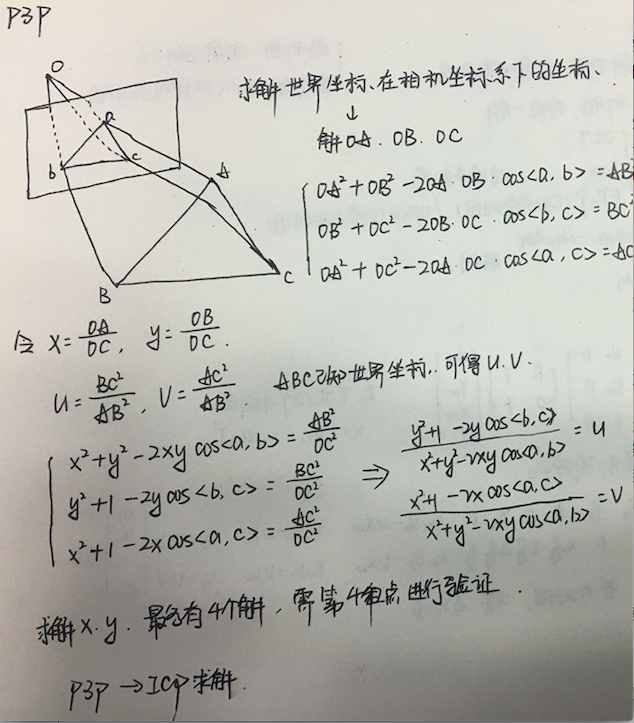 P3P
O
a
b
c
A
B
C
求解世界坐标、在相机坐标系下的坐标、
↓
解OA. OB. OC
OA² + OB² - 2OA· OB· cos<a, b> = AB
OB² + OC² - 2OB· OC· cos<b, c> = BC²
OA² + OC² - 2OA· OC· cos<a, c> = AC
令 x = OA/OC, y = OB/OC.
u = BC²/AB², v = AC²/AB². ABC已知世界坐标, 可得u.v.
x² + y² - 2xy cos<a, b> = AB²/OC²
y² + 1 - 2y cos<b, c> = BC²/OC²
x² + 1 - 2x cos<a, c> = AC²/OC²
⇒
(y²+1 - 2y cos<b, c>)/(x²+y² - 2xy cos<a, b>) = u
(x²+1 - 2x cos<a, c>)/(x²+y² - 2xy cos<a, b>) = v
求解x. y. 最多有4个解, 需第4组点进行验证.
P3P → ICP求解.